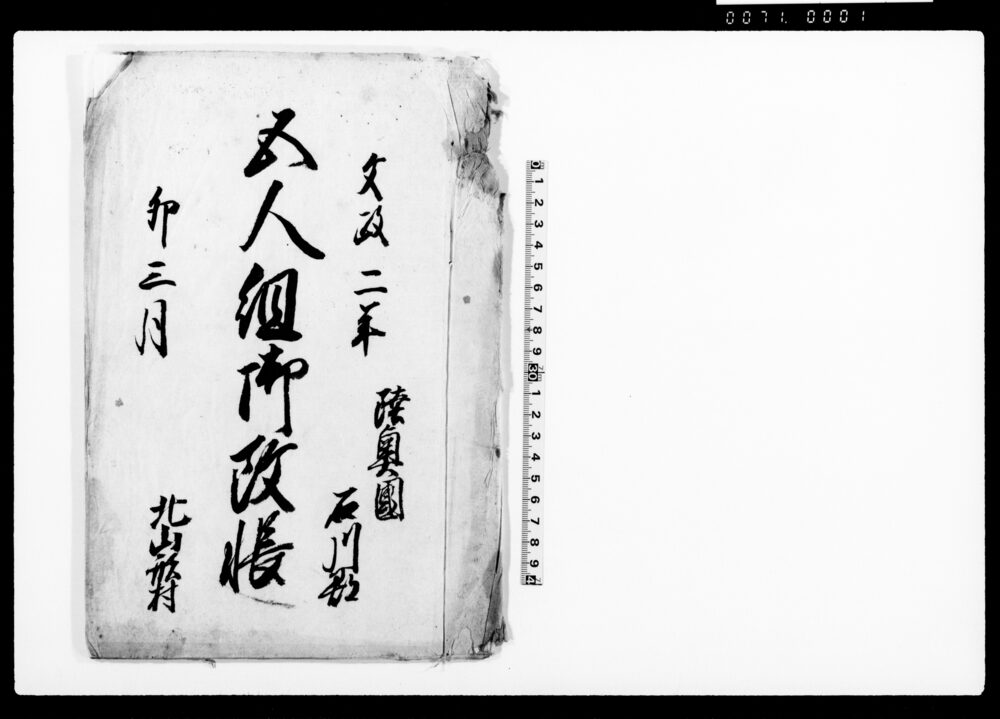 0071. 0001
文政二年
陸奥國
石川郡
五人組御改帳
卯三月
北山形村
0 1 2 3 4 5 6 7 8 9 30 1 2 3 4 5 6 7 8 9 4